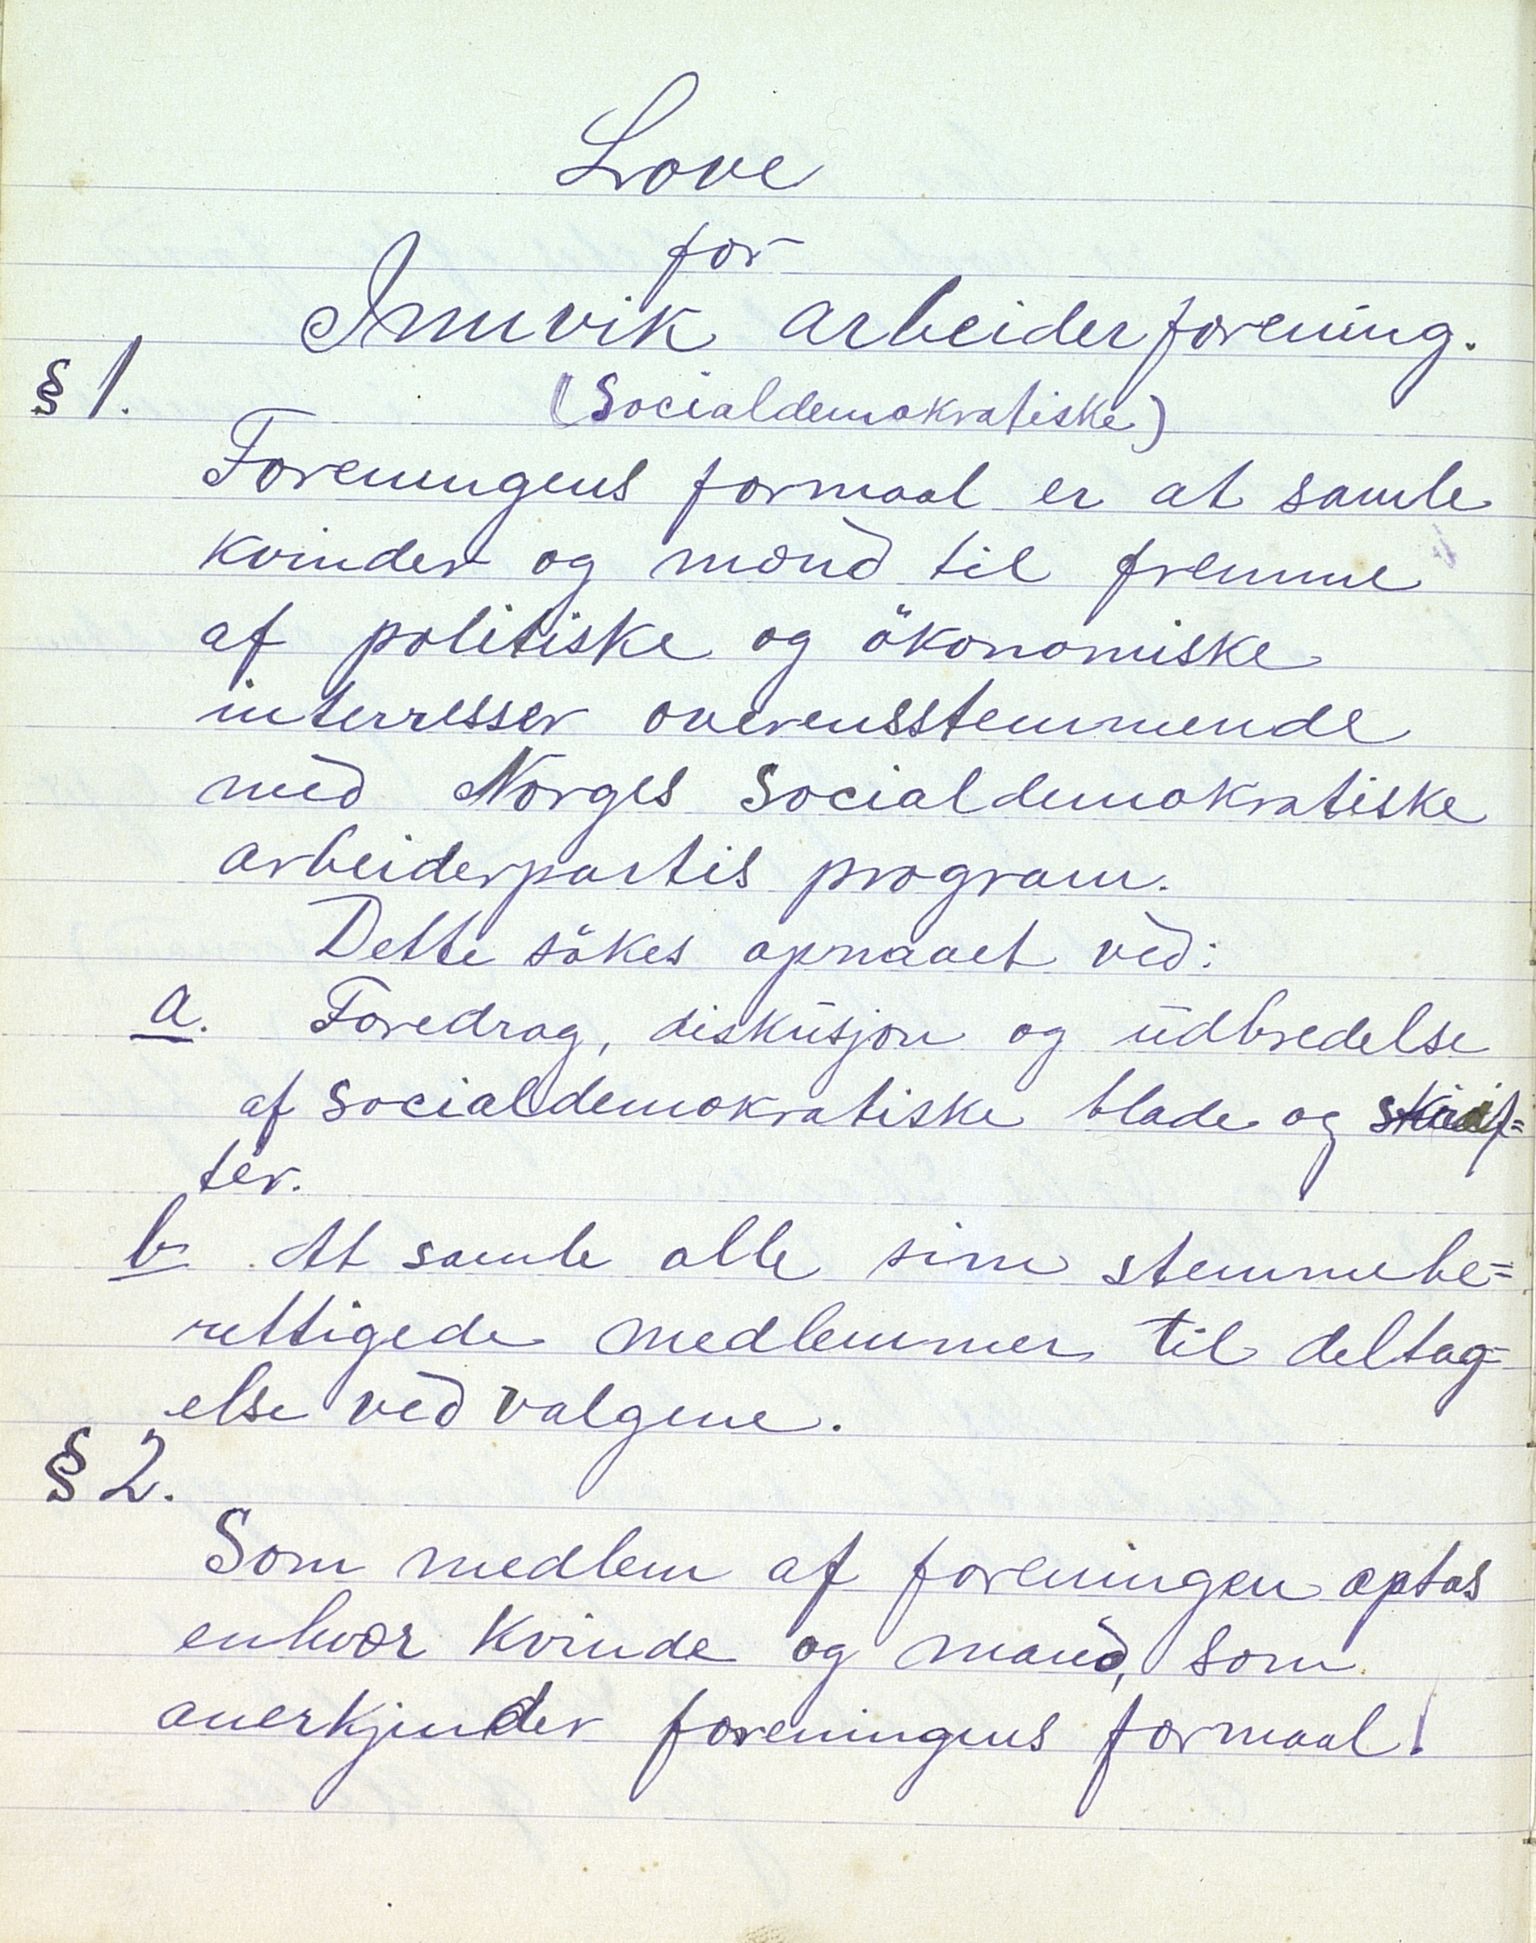 Love
for
Innvik arbeiderforening.
§ 1.
(Socialdemokratiske)
Foreningens formaal er at samle
kvinder og mænd til fremme
af politiske og ökonomiske
interresser overensstemmende
med Norges Socialdemokratiske
arbeiderpartis program.
Dette sökes opnaaet ved:
a. Foredrag, diskusjon og udbredelse
af socialdemokratiske blade og skrif=
ter.
b. At samle alle sine stemmebe=
rettigede medlemmer til deltag=
else ved valgene.
§ 2.
Som medlem af foreningen optas
enhver kvinde og mand, som
anerkjender foreningens formaal.